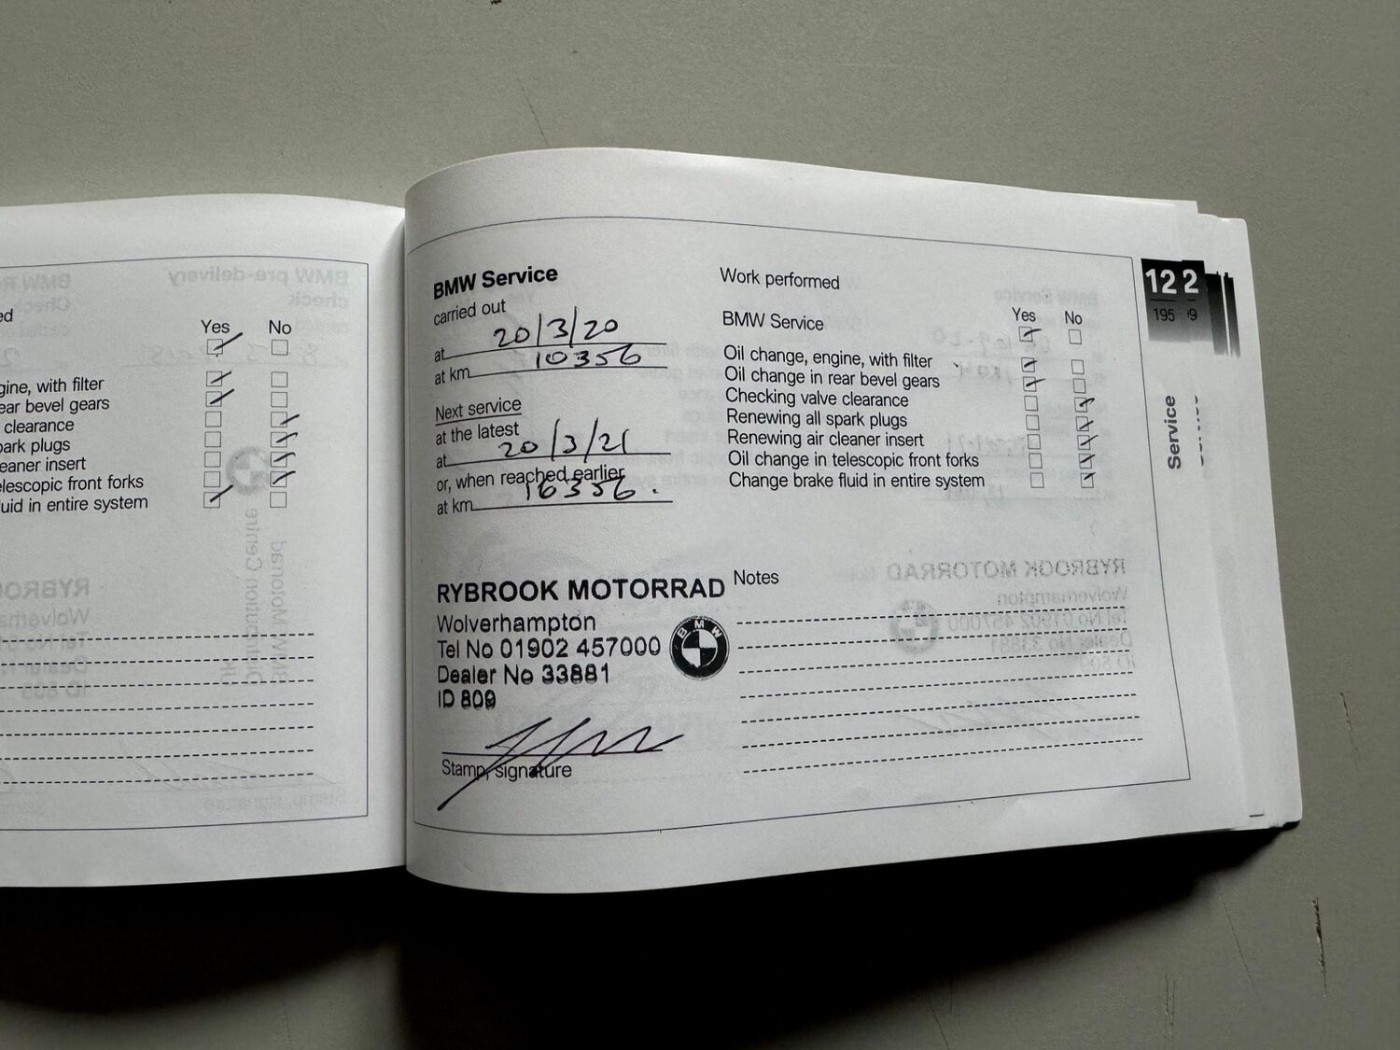 ed
Yes No
gine, with filter
ear bevel gears
clearance
park plugs
eaner insert
elescopic front forks
uid in entire system
BMW Service
carried out
at 20/3/20
at km 10356
Next service
at the latest
at 20/3/21
or, when reached earlier
at km 16356.
RYBROOK MOTORRAD
Wolverhampton
Tel No 01902 457000
Dealer No 33881
ID 809
BMW
Stamp, signature
Work performed
Yes No
BMW Service
Oil change, engine, with filter
Oil change in rear bevel gears
Checking valve clearance
Renewing all spark plugs
Renewing air cleaner insert
Oil change in telescopic front forks
Change brake fluid in entire system
Notes
12 2
195 9
Service